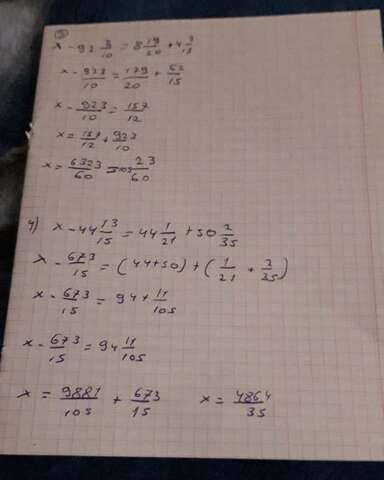 3)
x - 92 3/10 = 8 19/20 + 4 2/15
x - 923/10 = 179/20 + 62/15
x - 923/10 = 157/12
x = 157/12 + 923/10
x = 6323/60 = 105 23/60
4) x - 44 13/15 = 44 1/21 + 50 2/35
x - 673/15 = (44+50) + (1/21 + 2/35)
x - 673/15 = 94 + 11/105
x - 673/15 = 94 11/105
x = 9881/105 + 673/15 x = 4864/35